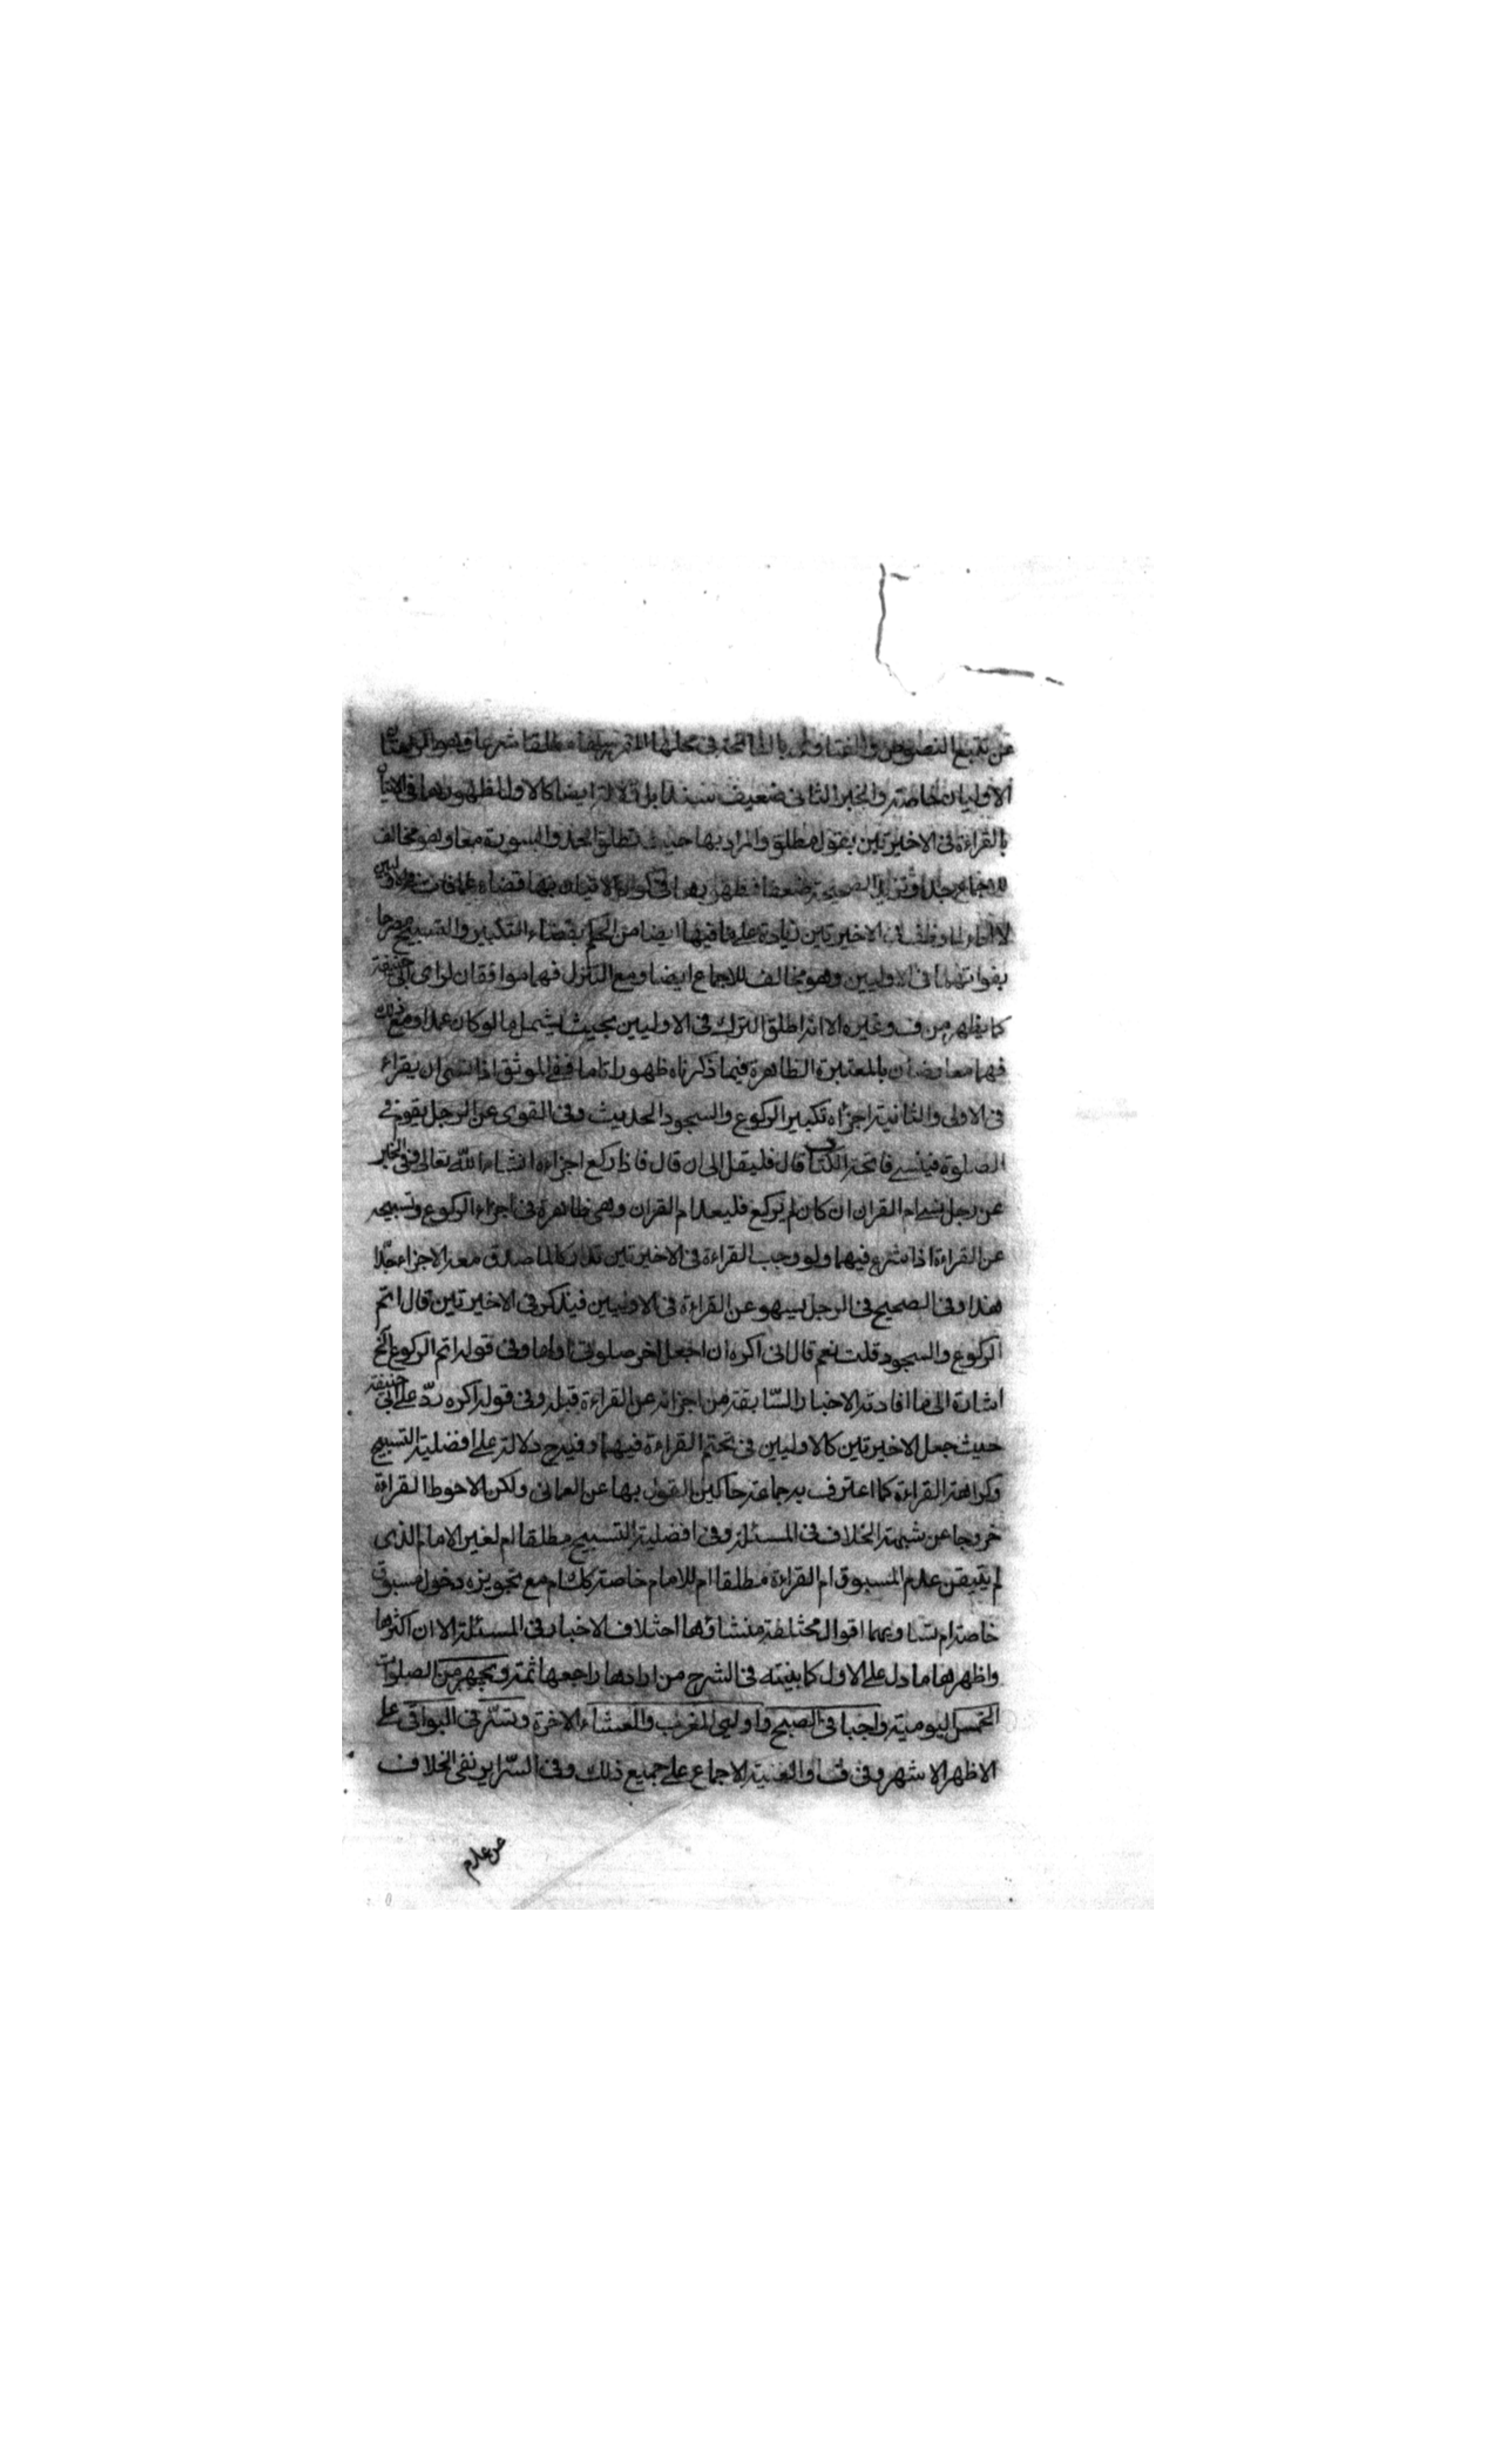 عن تتبع النصوص والفتاوى بالفاتحة في محلها المقرر لها مطلقا شرعا وهو الركعتان
الاوليان خاصة والخبر الثاني ضعيف سندا بل دلالة ايضا كالاول لظهورهما في الاتيان
بالقراءة في الاخيرتين بقول مطلق والمراد بها حيث تطلق الحمد والسورة معا وهو مخالف
للاجماع جدا وتزيد الصحيحة ضعفا بظهورها في كون الاتيان بها قضاء عما فات في الاوليين
لا اداء لما وظف في الاخيرتين زيادة على ما فيها ايضا من الحكم بقضاء التكبير والتسبيح مصرحا
بفواتهما في الاوليين وهو مخالف للاجماع ايضا ومع التنزل فهما موافقان لراى ابي حنيفة
كما يظهر من ف وغيره الا انه اطلق الترك في الاوليين بحيث يشمل ما لو كان عمدا ومع ذلك
فهما معارضان بالمعتبرة الظاهرة فيما ذكرناه ظهورا تاما ففي الموثق اذا نسى ان يقراء
في الاولى والثانية اجزاه تكبير الركوع والسجود الحديث وفي القوى عن الرجل يقوم في
الصلوة فينسى فاتحة الكتاب قال فليقل الى ان قال فاذا ركع اجزاءه انشاء الله تعالى وفي الخبر
عن رجل نسى ام القران ان كان لم يركع فليعد ام القران وهى ظاهرة في اجزاء الركوع وتسبيحه
عن القراءة اذا شرع فيهما ولو وجب القراءة في الاخيرتين تداركا لما صدق معه الاجزاء جدا
هذا وفي الصحيح في الرجل يسهو عن القراءة في الاوليين فيذكر في الاخيرتين قال اتم
الركوع والسجود قلت نعم قال انى اكره ان اجعل اخر صلوتي اولها وفي قوله اتم الركوع الخ
اشارة الى ما افادته الاخبار السابقة من اجزائه عن القراءة قبله وفي قوله اكره ردّ على ابي حنيفة
حيث جعل الاخيرتين كالاوليين في تحتم القراءة فيهما وفيه ح دلالة على افضلية التسبيح
وكراهة القراءة كما اعترف به جماعة حاكين القول بها عن العماني ولكن الاحوط القراءة
خروجا عن شبهة الخلاف في المسئلة وفي افضلية التسبيح مطلقا ام لغير الامام الذى
لم يتيقن عدم المسبوق ام القراءة مطلقا ام للامام خاصة كك ام مع تجويزه دخول مسبوق
خاصة ام تساويهما اقوال مختلفة منشائها اختلاف الاخبار في المسئلة الا ان اكثرها
واظهرها ما دل على الاول كما بينته في الشرح من ارادها راجعها ثمة ويجهر من الصلوات
الخمس اليومية واجبا في الصبح واوليي المغرب والعشاء الاخرة ويسرّ في البواقى على
الاظهر الاشهر وفي ف والغنية الاجماع على جميع ذلك وفي السّراير نفى الخلاف
عن عدم